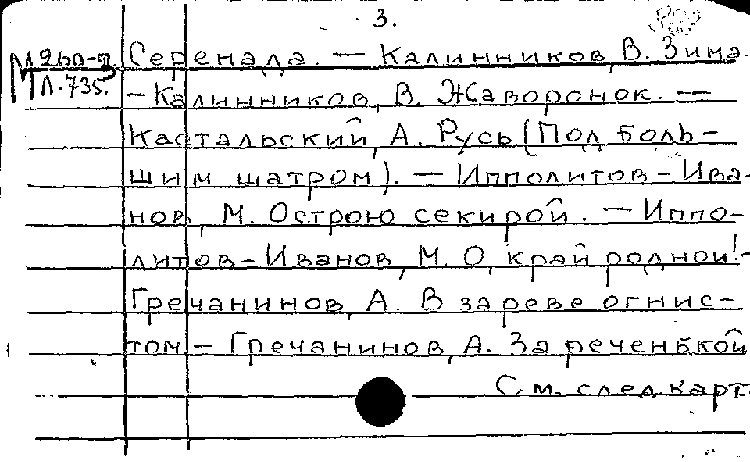 3.
М 260-3 Серенада. — Калинников, В. Зима.
Л.735. — Калинников, В. Жаворонок. —
Кастальский, А. Русь (Под боль-
шим шатром). — Ипполитов-Ива-
нов, М. Острою секирой. — Иппо-
литов-Иванов, М. О, край родной! -
Гречанинов, А. В зареве огнис-
том - Гречанинов, А. За реченькой
См. след карт.